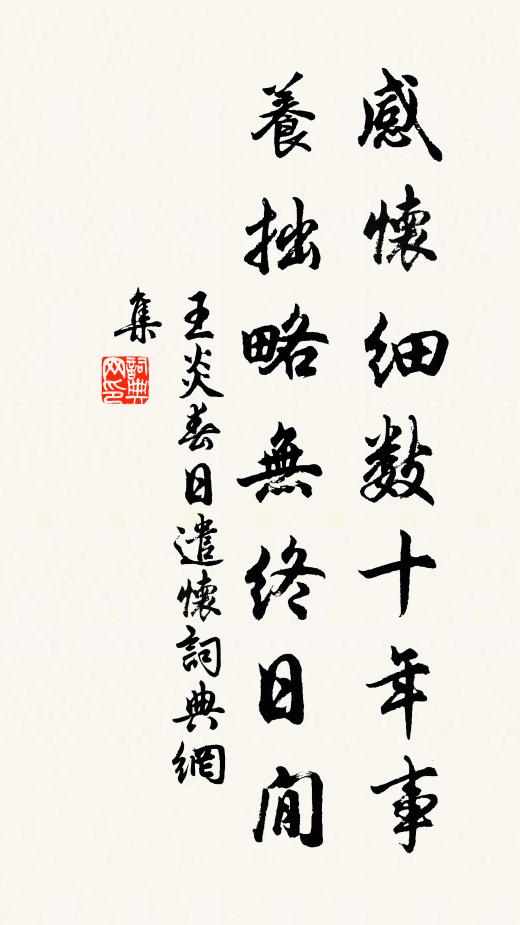 感懷細数十年事
養拙略無終日閒
王炎春日遣懷詞典網
集
詞典
网印